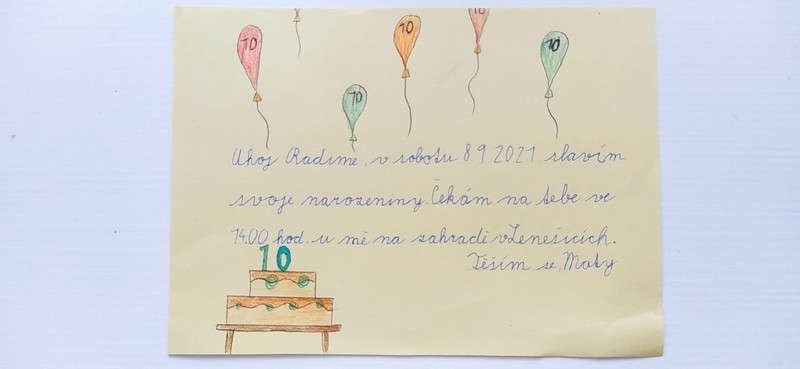 10
10
10
10
10
Ahoj Radime, v sobotu 8.9.2021 slavím
svoje narozeniny. Čekám na tebe ve
14.00 hod. u mě na zahradě v Lenešicích.
Těším se, Maty
10